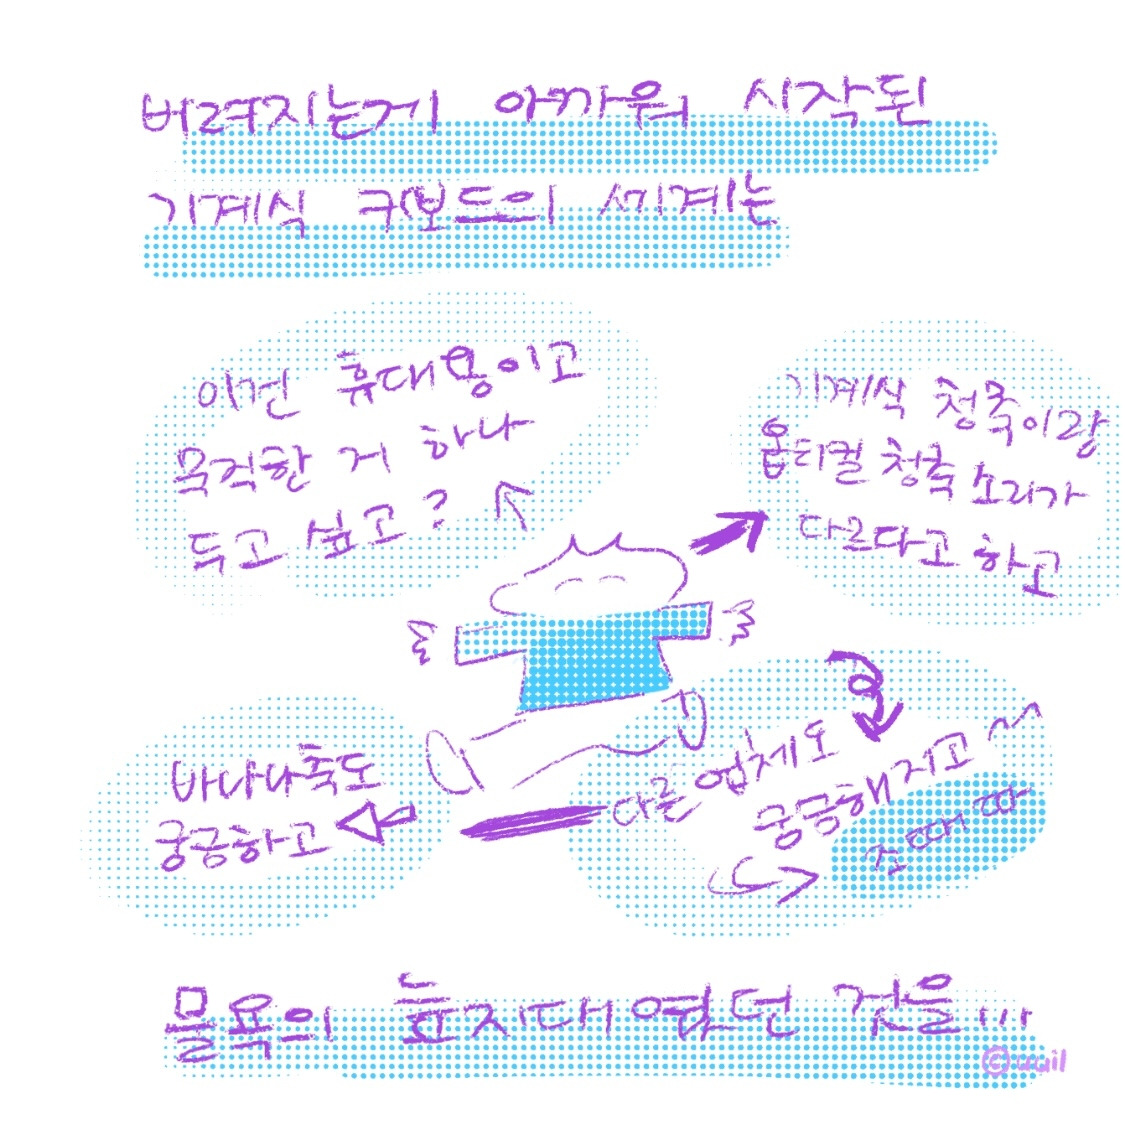 버려지는게 아까워 시작된
기계식 키보드의 세계는
이건 휴대용이고
묵직한 거 하나
두고 싶고?
기계식 청축이랑
옵티컬 청축 소리가
다르다고 하고
바나나축도
궁금하고
다른 업체도
궁금해지고~
조때따
물욕의 늪지대였던 것을...
©uuil